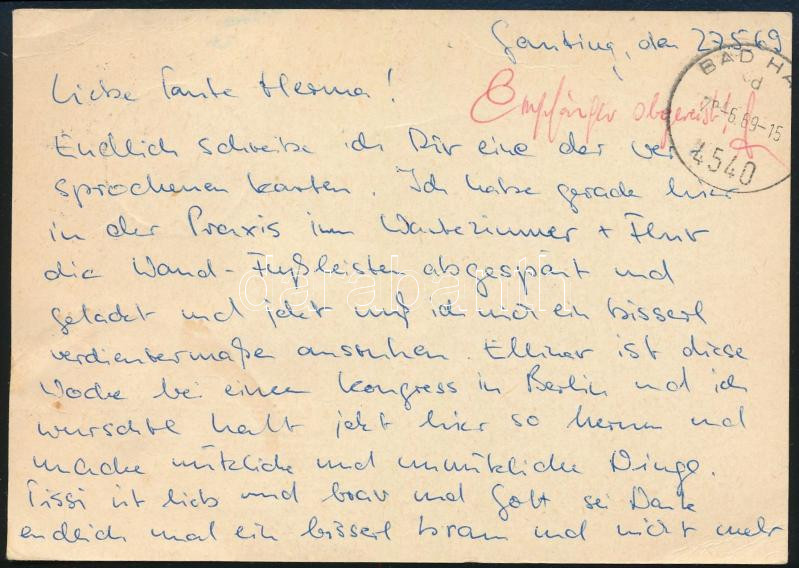 Gauting, den 27.5.69
BAD HA
Liebe Tante Herma!
Empfänger abgereist!
-6.69-15
4540
Endlich schreibe ich Dir eine der ver
sprochenen Karten. Ich habe gerade hier
in der Praxis im Wartezimmer + Flur
die Wand-Fußleisten abgespänt und
gelackt und jetzt muß ich mich ein bisserl
verdientermaßen ausruhen. Ellinor ist diese
Woche bei einem Kongress in Berlin und ich
wurschtl halt jetzt hier so herum und
mache nützliche und unnützliche Dinge.
Tissi ist lieb und brav und Gott sei Dank
endlich mal ein bisserl braun und nicht mehr
darabanth